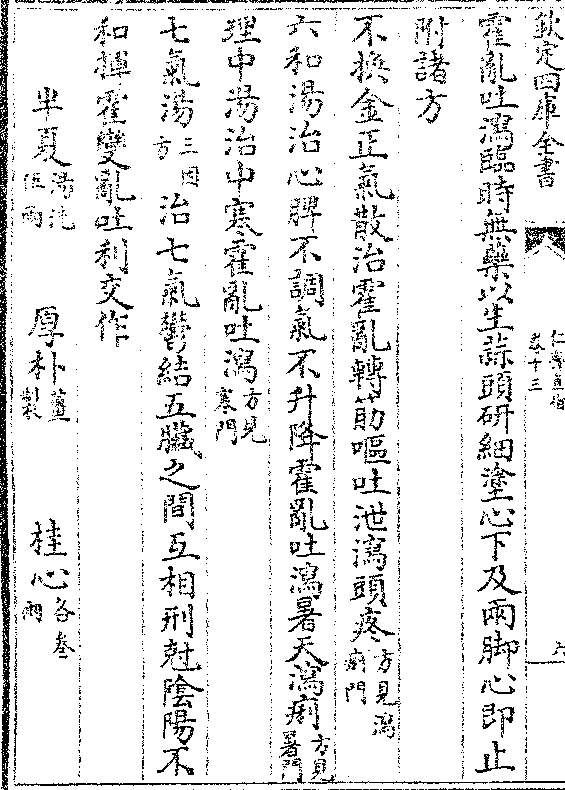 欽定四庫全書
仁齋直指
卷十三
六
霍亂吐瀉臨時無藥以生蒜頭研細塗心下及兩脚心即止
附諸方
不換金正氣散治霍亂轉筋嘔吐泄瀉頭疼方見瀉痢門
六和湯治心脾不調氣不升降霍亂吐瀉暑天瀉痢方見暑門
理中湯治中寒霍亂吐瀉方見寒門
七氣湯三因方治七氣鬱結五臟之間互相刑尅陰陽不
和揮霍變亂吐利交作
半夏湯洗伍兩 厚朴薑製 桂心各叁兩